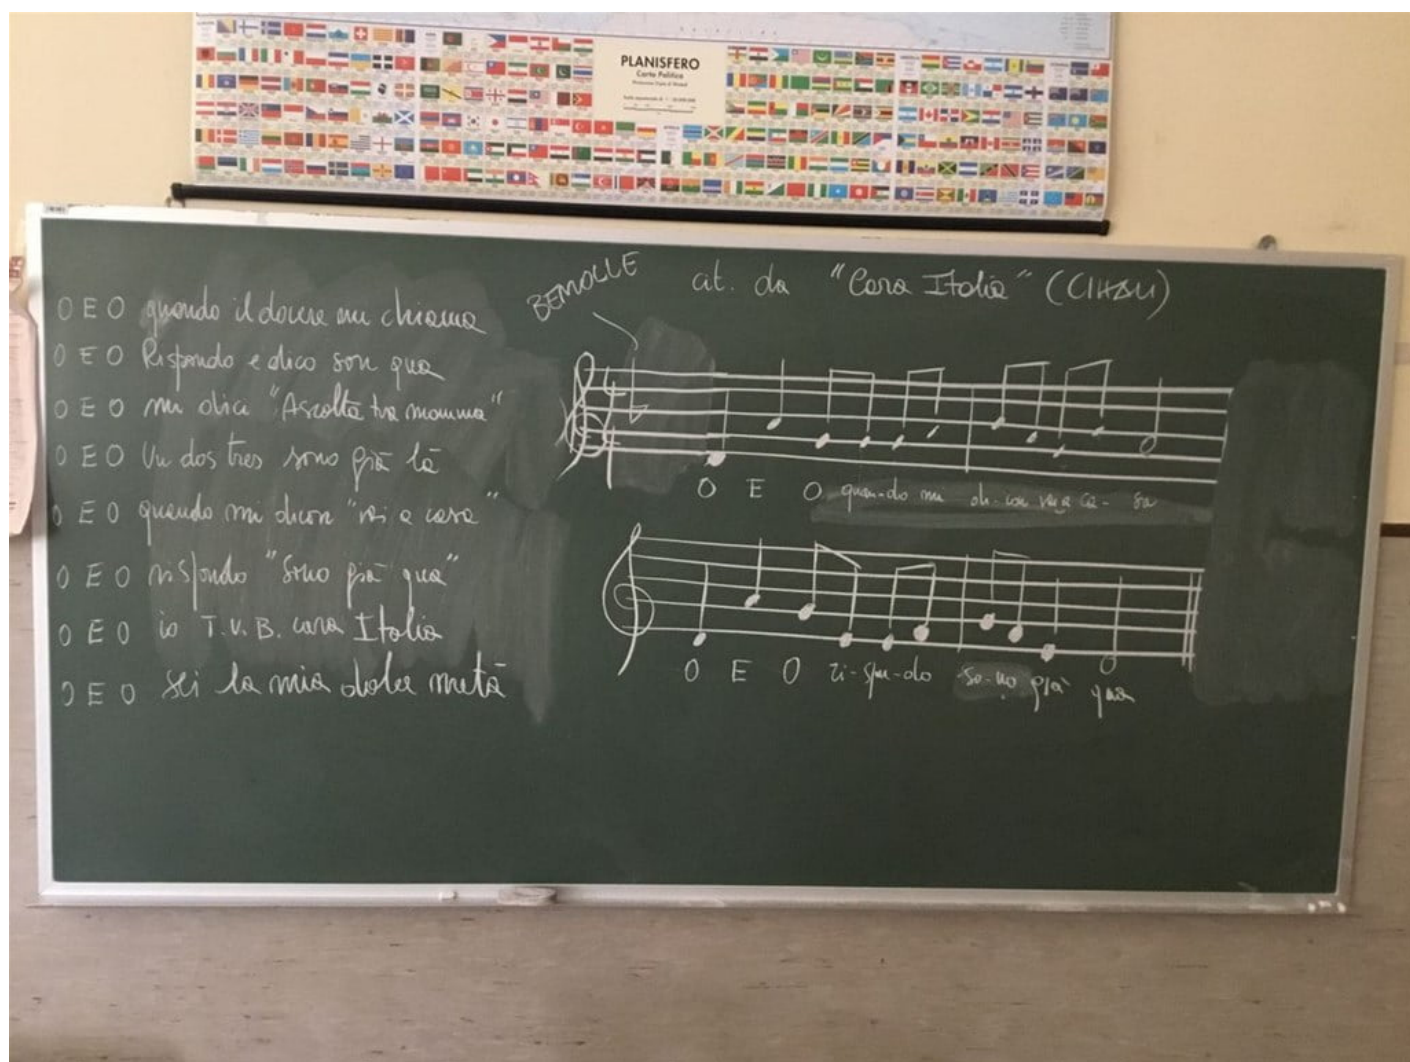 PLANISFERO
Carta Politica
O E O quando il dovere mi chiama
O E O Rispondo e dico son qua
O E O mi dici "Ascolta tua mamma"
O E O Un dos tres sono già là
O E O quando mi dicon "vai a casa"
O E O rispondo "Sono già qua"
O E O io T.V.B. cara Italia
O E O sei la mia dolce metà
BEMOLLE
cit. da "Cara Italia"
O E O quan-do mi di-con vai a ca-sa
O E O ri-spon-do so-no già qua